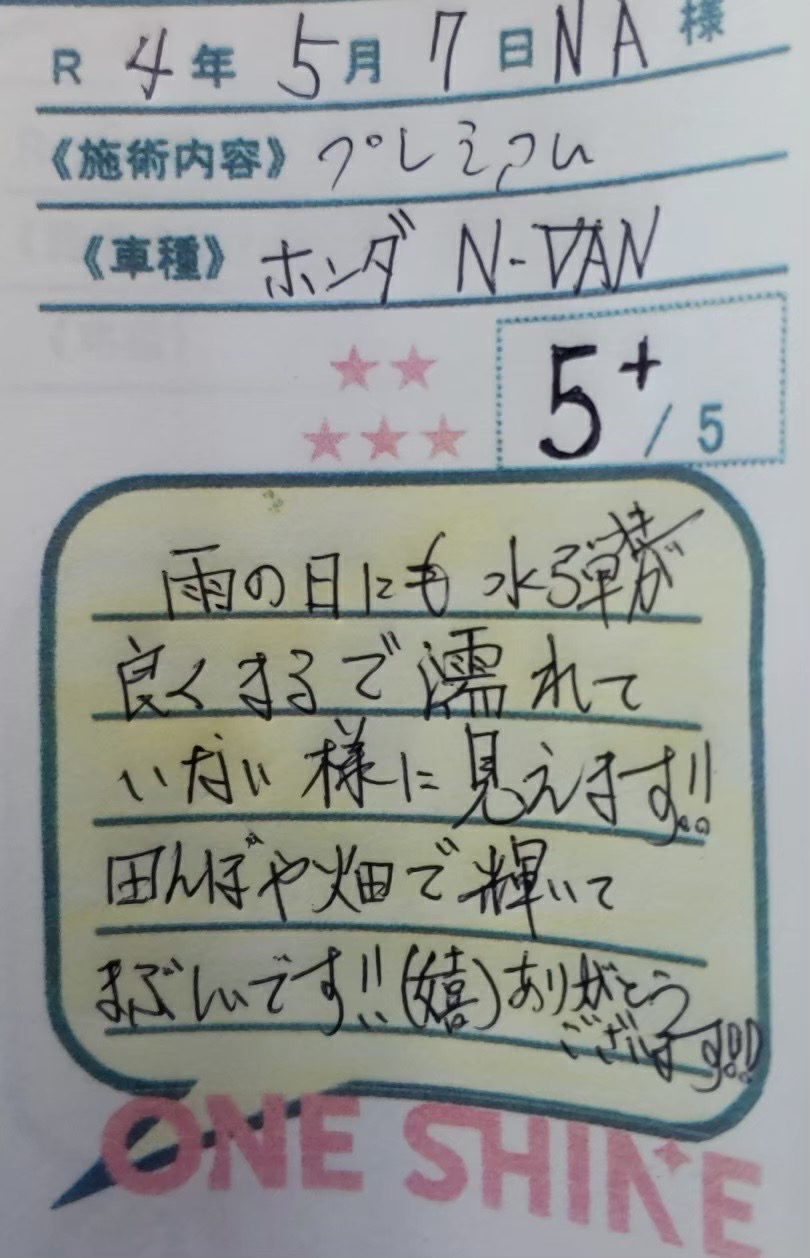 R 4年 5月 7日 NA 様
《施術内容》 プレミアム
《車種》 ホンダ N-VAN
5+ / 5
雨の日にも水弾きが
良くまるで濡れて
いない様に見えます!!
田んぼや畑で輝いて
まぶしいです!!(嬉)ありがとう
ございます!!
ONE SHINE